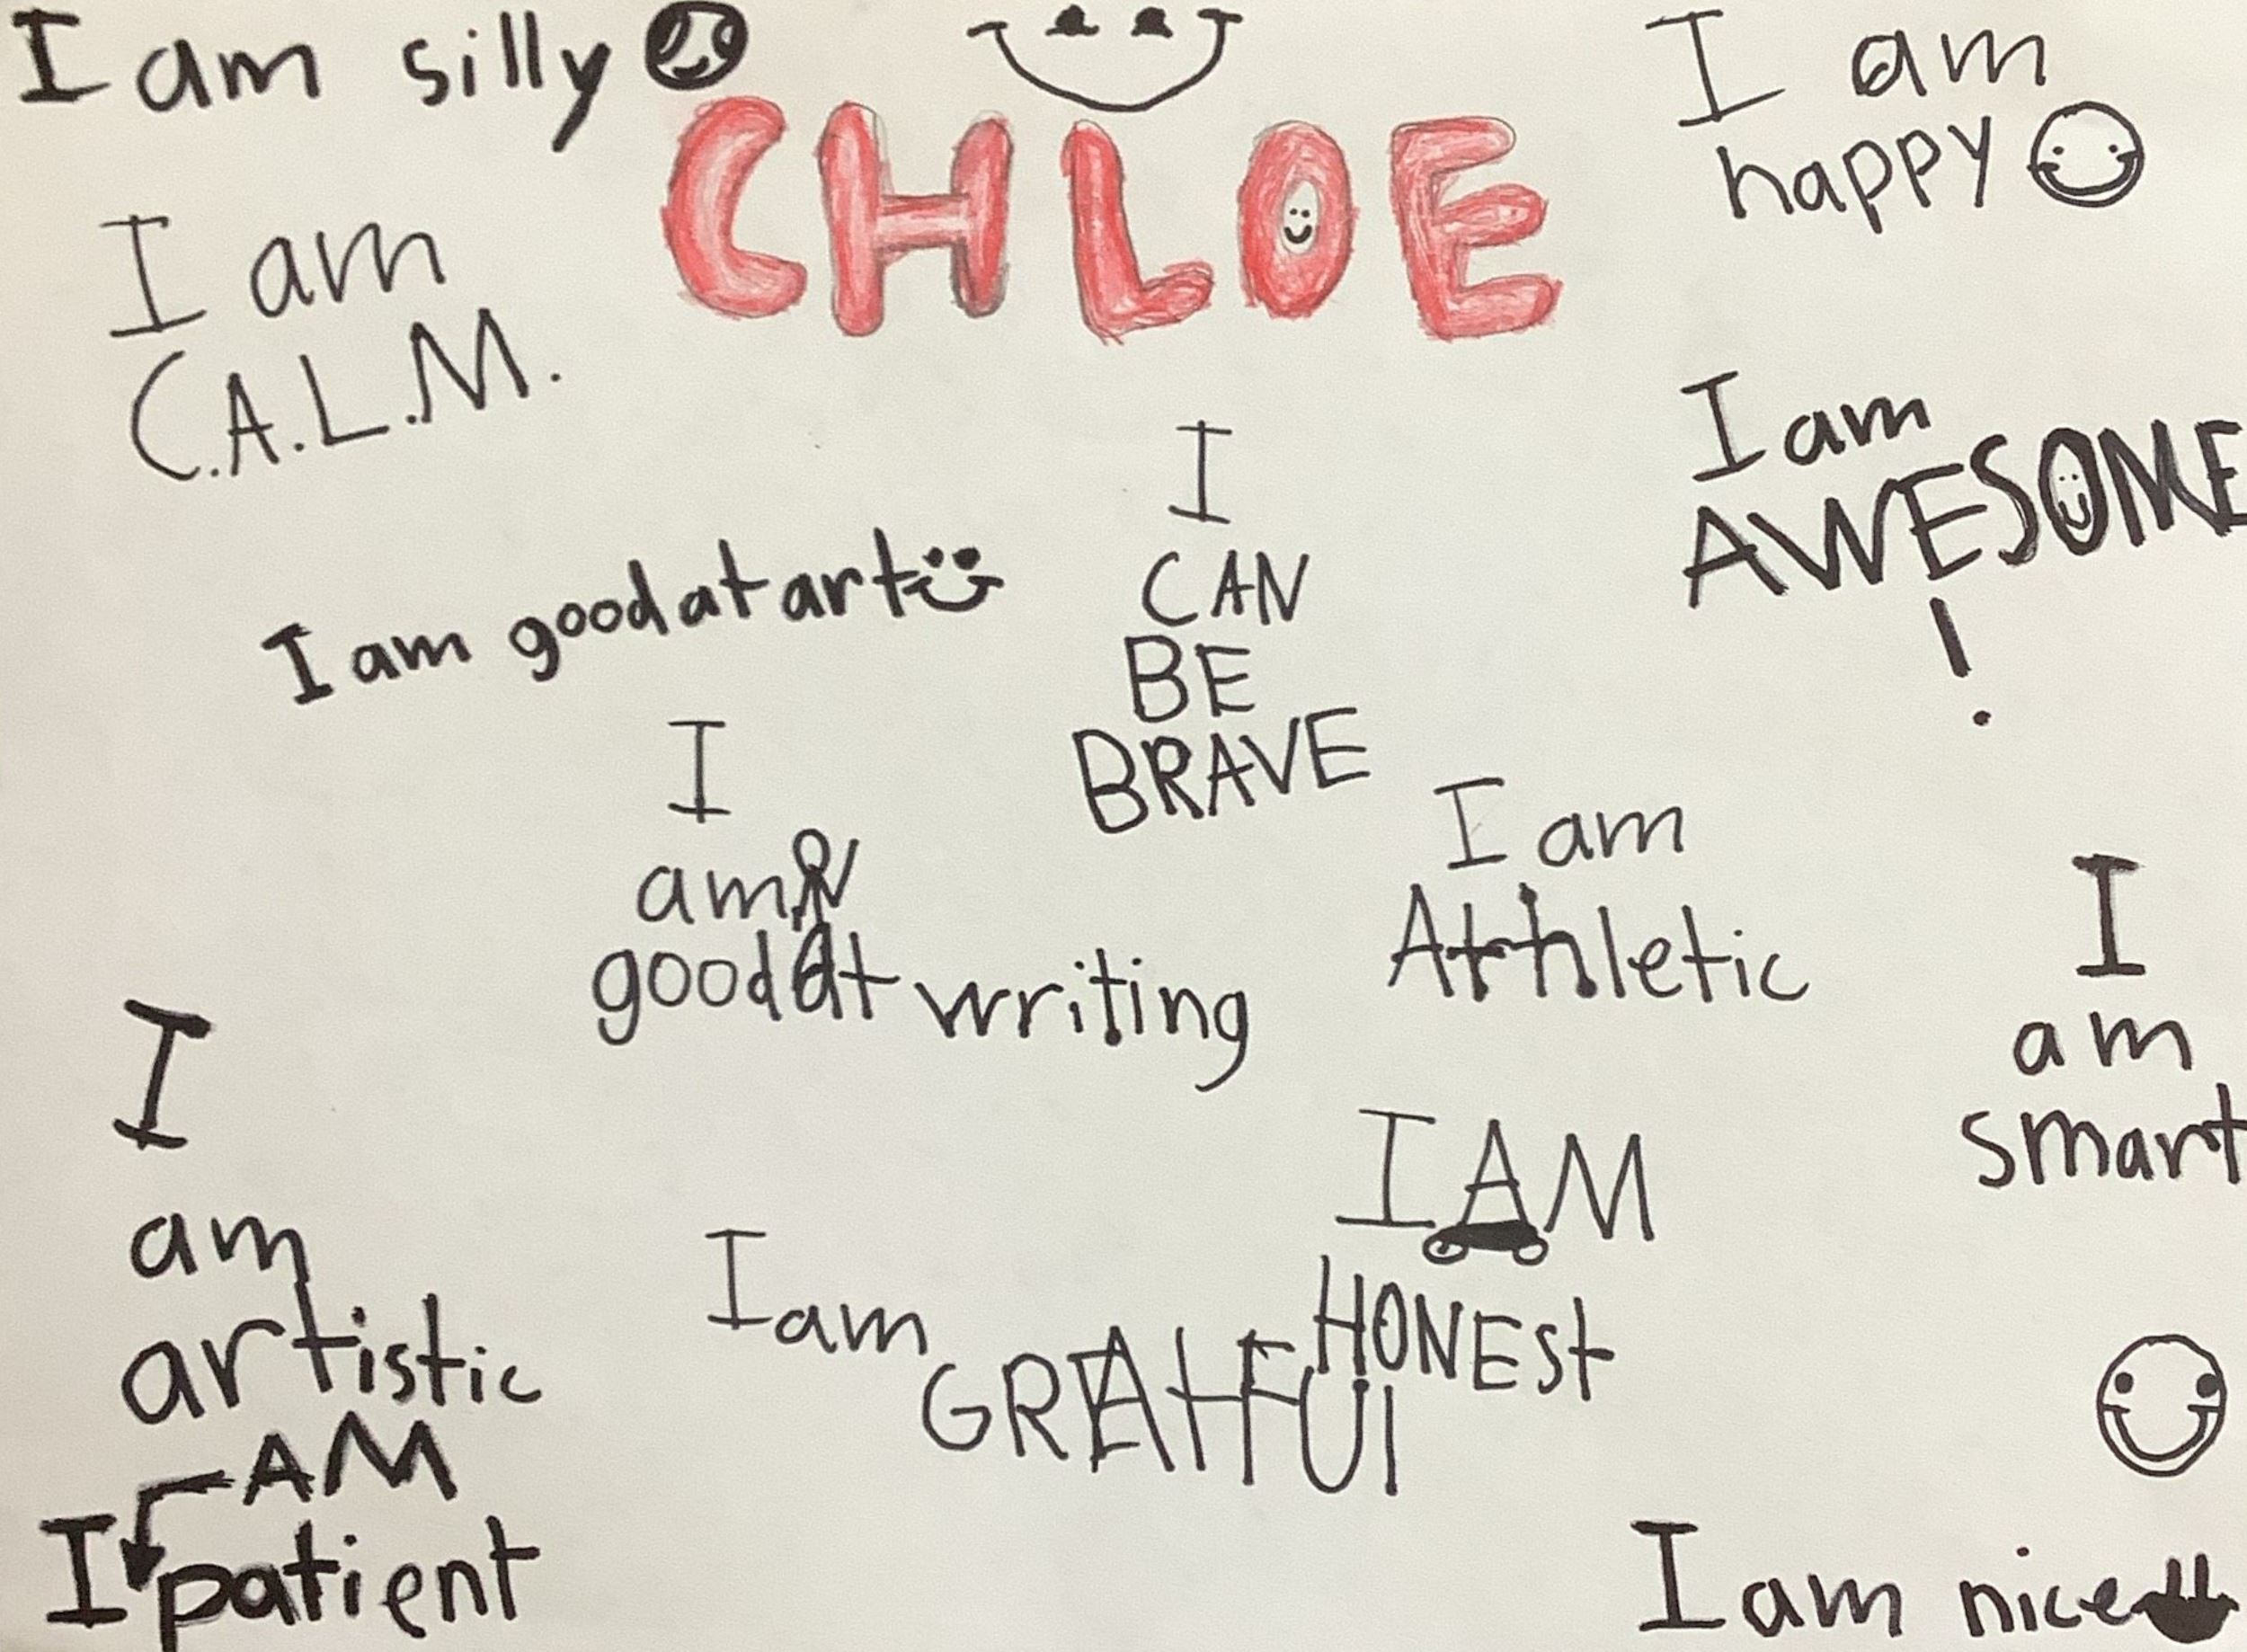 I am silly
CHLOE
I am
happy
I am
C.A.L.M.
I am
AWESOME
!
I am good at art
I
CAN
BE
BRAVE
I
am
good at writing
I am
Athletic
I
am
smart
I
am
artistic
I AM
HONEST
I am
GREATFUl
AM
I patient
I am nice